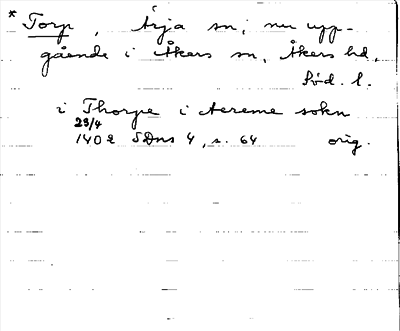 * Torp, Ärja sn; nu upp-
gående i Åkers sn, Åkers hd,
Söd. l.
i Thorpe i Aereme sokn
23/4
1402 SDns 4, s. 64 orig.